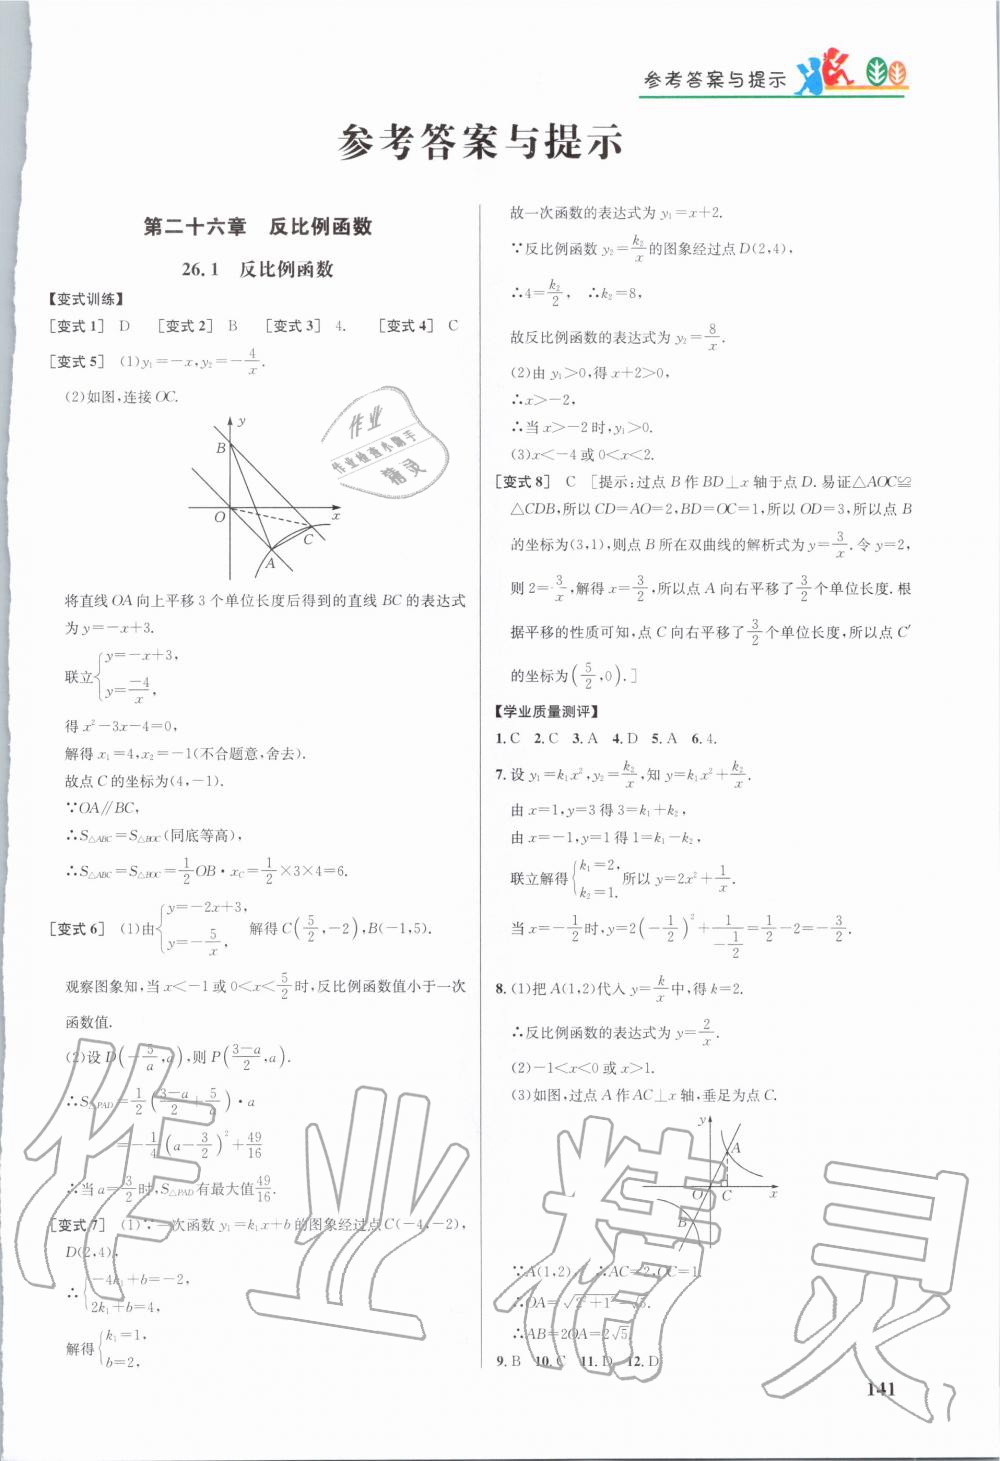 参考答案与提示
参考答案与提示
第二十六章 反比例函数
26.1 反比例函数
【变式训练】
[变式1] D [变式2] B [变式3] 4. [变式4] C
[变式5] (1)y₁=-x,y₂=-4/x.
(2)如图,连接OC.
y
B
O
x
C
A
将直线OA向上平移3个单位长度后得到的直线BC的表达式
为y=-x+3.
联立{y=-x+3, y=-4/x,
得x²-3x-4=0,
解得x₁=4,x₂=-1(不合题意,舍去).
故点C的坐标为(4,-1).
∵OA∥BC,
∴S△ABC=S△BOC(同底等高),
∴S△ABC=S△BOC=1/2OB·xC=1/2×3×4=6.
[变式6] (1)由{y=-2x+3, y=-5/x, 解得C(5/2,-2),B(-1,5).
观察图象知,当x<-1或0<x<5/2时,反比例函数值小于一次
函数值.
(2)设D(-5/a,a),则P((3-a)/2,a).
∴S△PAD=1/2((3-a)/2+5/a)·a
=-1/4(a-3/2)²+49/16
∴当a=3/2时,S△PAD有最大值49/16.
[变式7] (1)∵一次函数y₁=k₁x+b的图象经过点C(-4,-2),
D(2,4),
∴{-4k₁+b=-2, 2k₁+b=4,
解得{k₁=1, b=2,
故一次函数的表达式为y₁=x+2.
∵反比例函数y₂=k₂/x的图象经过点D(2,4),
∴4=k₂/2, ∴k₂=8,
故反比例函数的表达式为y₂=8/x.
(2)由y₁>0,得x+2>0,
∴x>-2,
∴当x>-2时,y₁>0.
(3)x<-4或0<x<2.
[变式8] C [提示:过点B作BD⊥x轴于点D.易证△AOC≌
△CDB,所以CD=AO=2,BD=OC=1,所以OD=3,所以点B
的坐标为(3,1),则点B所在双曲线的解析式为y=3/x.令y=2,
则2=3/x,解得x=3/2,所以点A向右平移了3/2个单位长度.根
据平移的性质可知,点C向右平移了3/2个单位长度,所以点C′
的坐标为(5/2,0).]
【学业质量测评】
1.C 2.C 3.A 4.D 5.A 6.4.
7.设y₁=k₁x²,y₂=k₂/x,知y=k₁x²+k₂/x.
由x=1,y=3得3=k₁+k₂,
由x=-1,y=1得1=k₁-k₂,
联立解得{k₁=2, k₂=1. 所以y=2x²+1/x.
当x=-1/2时,y=2(-1/2)²+1/(-1/2)=1/2-2=-3/2.
8.(1)把A(1,2)代入y=k/x中,得k=2.
∴反比例函数的表达式为y=2/x.
(2)-1<x<0或x>1.
(3)如图,过点A作AC⊥x轴,垂足为点C.
y
A
O
C
x
B
∵A(1,2),∴AC=2,OC=1,
∴OA=√(2²+1²)=√5.
∴AB=2OA=2√5.
9.B 10.C 11.D 12.D
141
作业
作业检查小助手
精灵
作业精灵